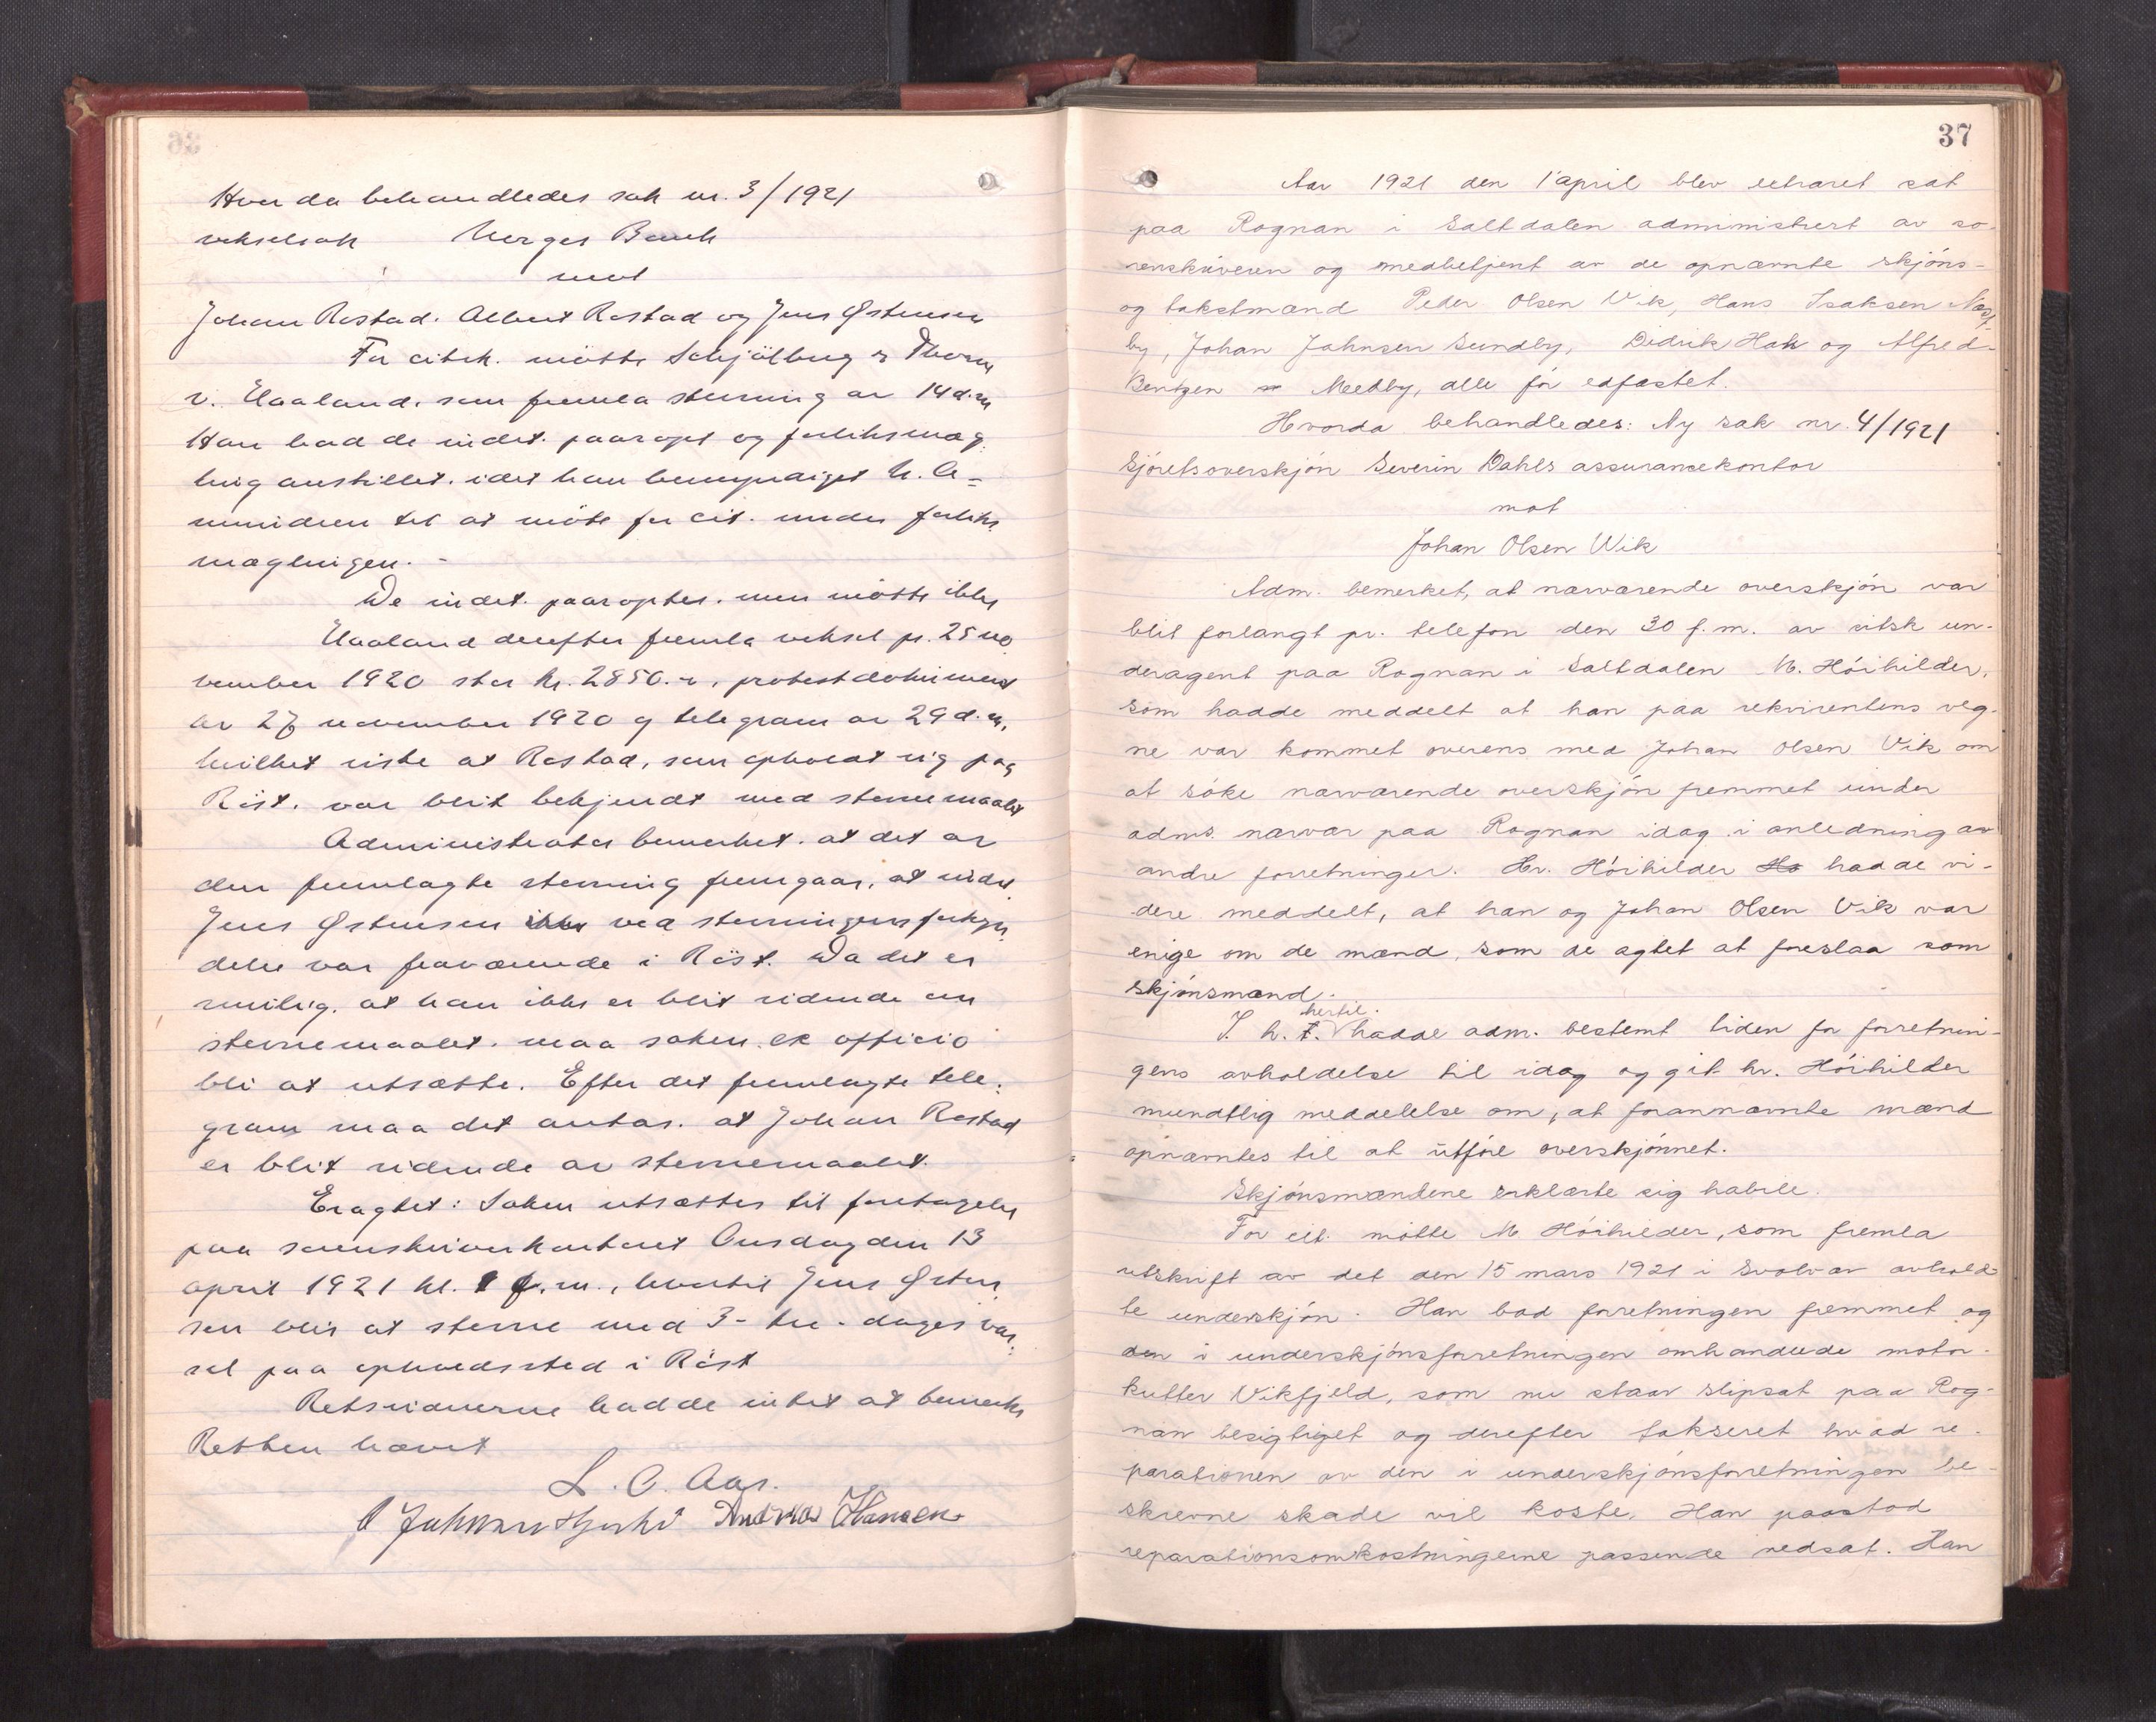 Hvor da behandledes sak nr. 3/1921
vekselsak Norges Bank
mot
Johan Rostad. Albert Rostad og Jens Østensen
For citsk. møtte Schjølberg & Thorne
v. Haaland. som fremla stevning av 14 d.m
Han bad de indst. paaropt og forliksmæg-
ling anstillet. idet han bemyndiget
til at møte for cit. under forliks
mæglingen. -
De indst. paaroptes. men møtte ikke
Haaland derefter fremla veksel pr. 25 no
vember 1920 stor kr. 2850.-, protestdokument
av 27 november 1920 og telegram av 29 d.m,
hvilket viste at Rostad, som opholdt sig paa
Röst. var blit bekjendt med stevnemaalet
Administrator bemerket. at det av
den fremlagte stevning fremgaar, at indst
Jens Østensen ikke ved stevningens forkyn
delse var fraværende i Röst. Da det er
rimelig. at han ikke er blit vidende om
stevnemaalet. maa saken ex officio
bli at utsætte. Efter det fremlagte tele-
gram maa det antas. at Johan Rostad
er blit vidende av stevnemaalet.
Eragtet: Saken utsættes til foretagelse
paa sorenskriverkontoret Onsdag den 13
april 1921 kl. 9 f.m., hvortil Jens Østen
sen blir at stevne med 3- tre - dages var-
sel paa opholdssted i Röst
Retsvidnerne hadde intet at bemerke
Retten hævet
L. C. Aas.
Andreas Hansen
37
Aar 1921 den 1 april blev extraret sat
paa Rognan i Saltdalen administrert av so-
renskriveren og medbetjent av de opnævnte skjöns-
og takstmænd Peder Olsen Vik, Hans Isaksen Næst-
by, Johan Johnsen Sundby, Didrik Hak og Alfred
Bentzen Medby, alle för edfæstet.
Hvorda behandledes: Ny sak nr. 4/1921
Sjöretsoverskjön Severin Dahls assurancekontor
mot
Johan Olsen Wik
Adm. bemerket, at nærværende overskjön var
blit forlangt pr. telefon den 30 f.m. av citsk un-
deragent paa Rognan i Saltdalen M. Höihilder,
som hadde meddelt at han paa rekvirentens veg-
ne var kommet overens med Johan Olsen Vik om
at söke nærværende overskjön fremmet under
adms. nærvær paa Rognan idag i anledning av
andre forretninger. Hr. Höihilder Ha hadde vi-
dere meddelt, at han og Johan Olsen Vik var
enige om de mænd, som de agtet at foreslaa som
skjönsmænd.
hertil.
I h. t. hadde adm. bestemt tiden for forretnin-
gens avholdelse til idag og git hr. Höihilder
mundtlig meddelelse om, at forannævnte mænd
opnævntes til at utföre overskjönnet.
Skjönsmændene erklærte sig habile.
For cit. mötte M Höihilder, som fremla
utskrift av det den 15 mars 1921 i Svolvær avhold-
te underskjön. Han bad forretningen fremmet og
den i underskjönsforretningen omhandlede motor-
kutter Vikfjeld, som nu staar slipsat paa Rog-
nan besigtiget og derefter takseret hvad re-
parationen av den i underskjönsforretningen be-
skrevne skade vil koste. Han paastod
reparationsomkostningerne passende nedsat. Han